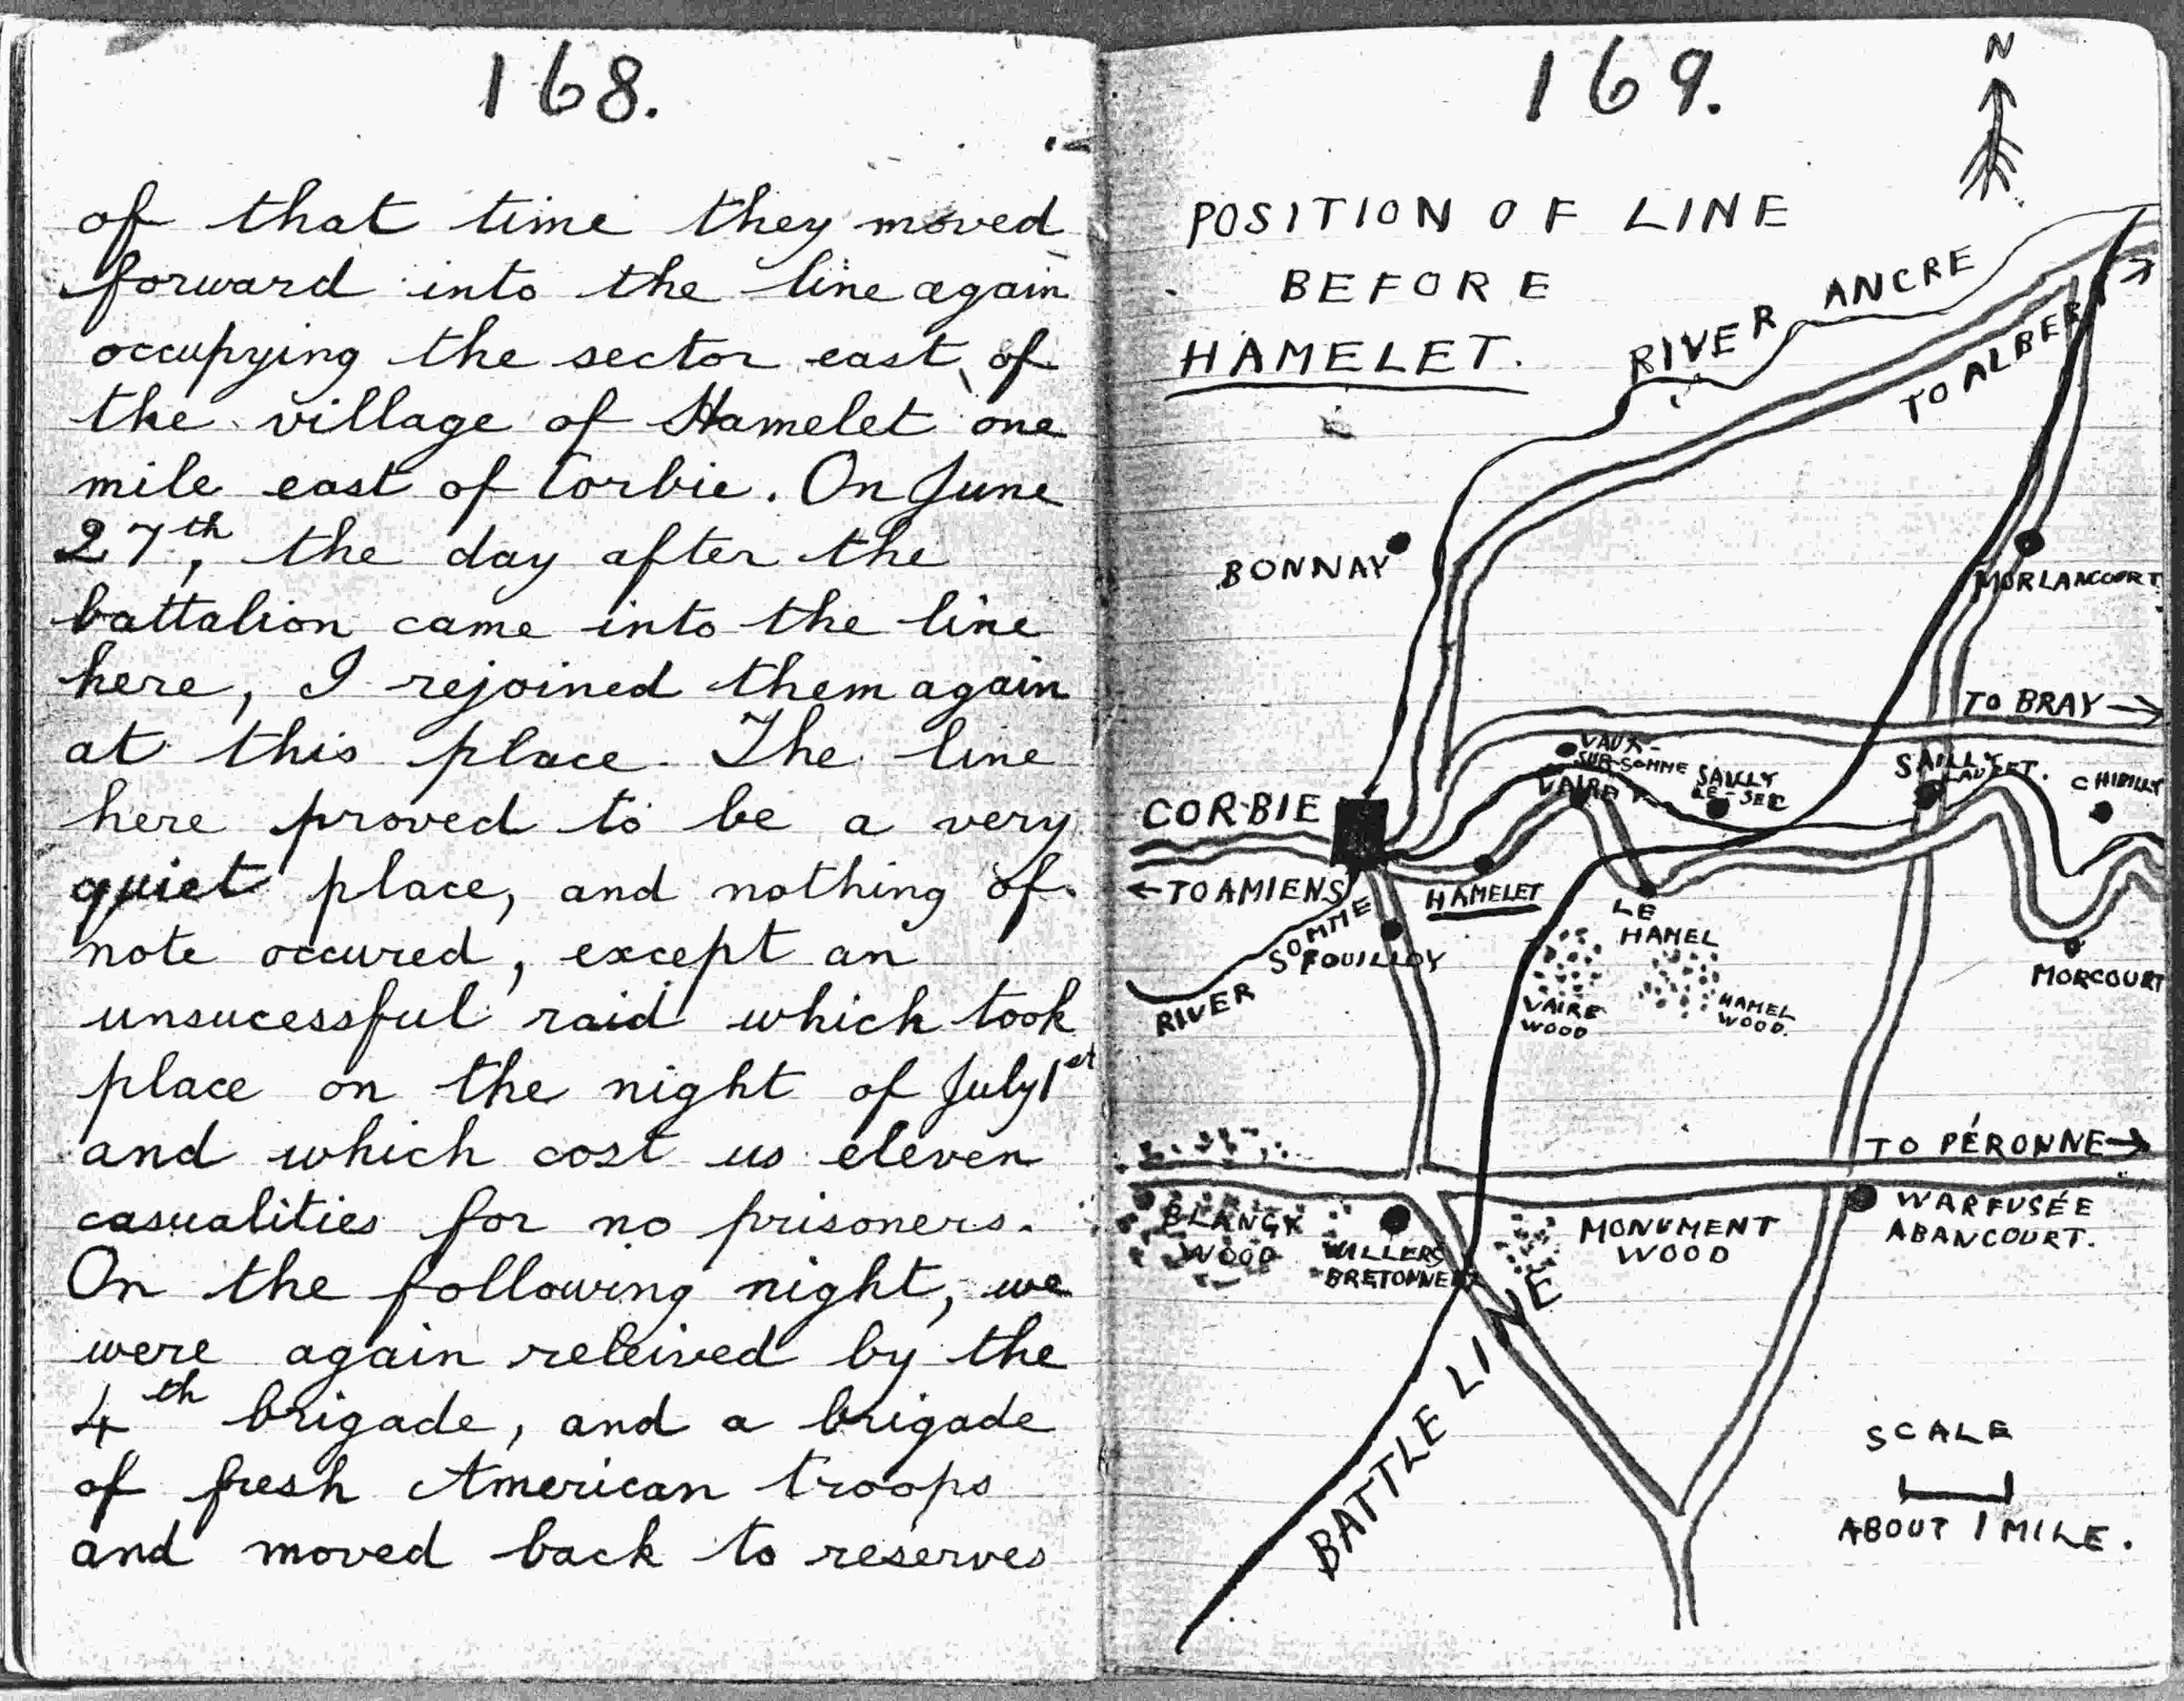 168.
of that time they moved
forward into the line again
occupying the sector east of
the village of Hamelet one
mile east of Corbie. On June
27th, the day after the
battalion came into the line
here, I rejoined them again
at this place. The line
here proved to be a very
quiet place, and nothing of
note occured, except an
unsucessful raid which took
place on the night of July 1st
and which cost us eleven
casualities for no prisoners.
On the following night, we
were again releived by the
4th brigade, and a brigade
of fresh American troops
and moved back to reserves
169.
N
POSITION OF LINE
BEFORE
HAMELET.
RIVER ANCRE
TO ALBERT
BONNAY
MORLANCOURT
TO BRAY
VAUX-
SUR-SOMME
VAIRE
SAILLY
LE-SEC
SAILLY
LAURET.
CHIPILLY
CORBIE
← TO AMIENS
HAMELET
LE
HAMEL
RIVER SOMME
FOUILLOY
VAIRE
WOOD
HAMEL
WOOD.
MORCOURT
TO PÉRONNE →
BLANGY
WOOD
VILLERS
BRETONNEX
MONUMENT
WOOD
WARFUSÉE
ABANCOURT.
BATTLE LINE
SCALE
ABOUT 1 MILE.